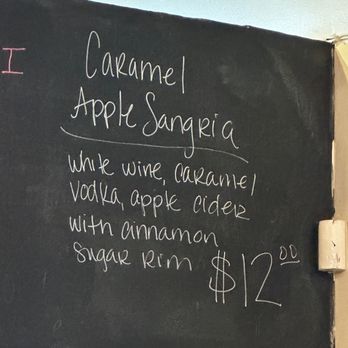 I
Caramel
Apple Sangria
white wine, caramel
vodka, apple cider
with cinnamon
sugar rim $12.00